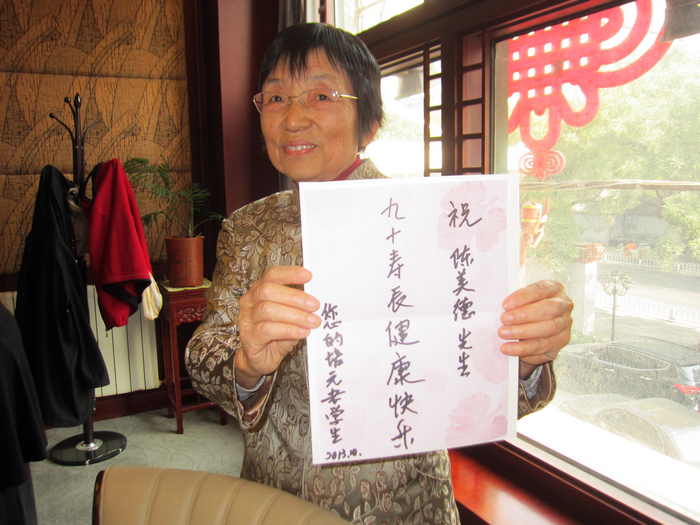 祝 陈美德 先生
九十寿辰健康快乐
你您的培元老学生
2013.10.